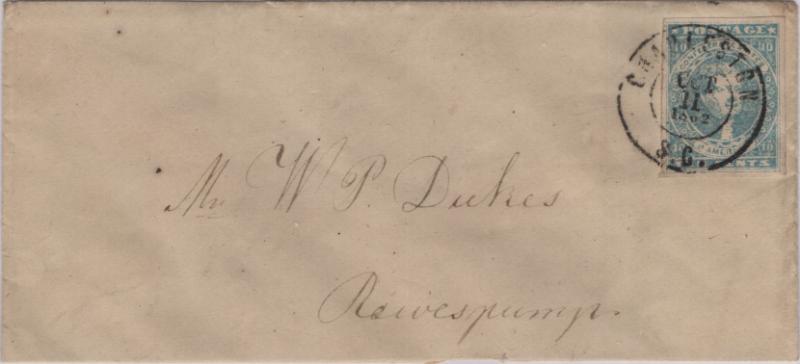 POSTAGE
10 10
CHARLESTON
OCT
11
1862
S.C.
10 10
CENTS
Mr W P. Dukes
Rowespump.